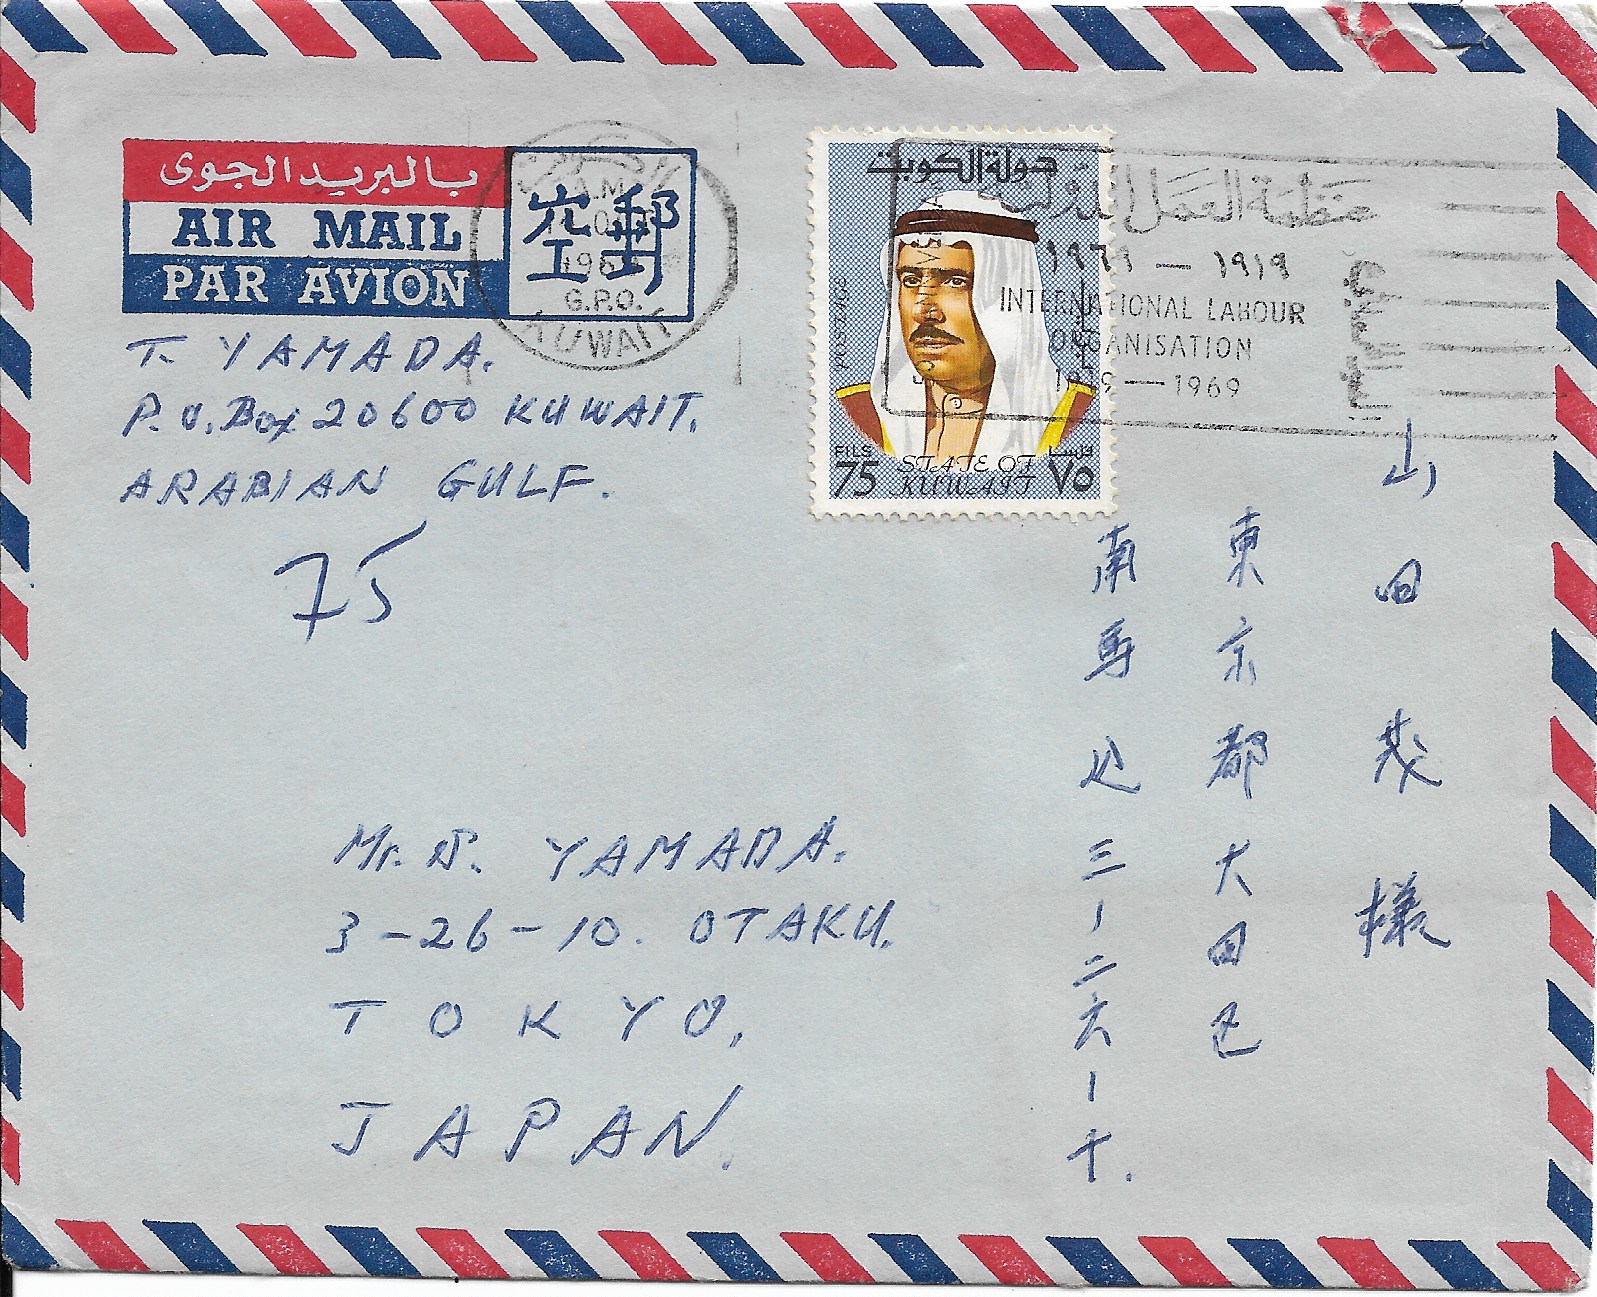 بالبريد الجوى
AIR MAIL
PAR AVION
空郵
G.P.O.
KUWAIT
دولة الكويت
POSTAGE
FILS
75
STATE OF
KUWAIT
فلسا
٧٥
منظمة العمل الدولية
١٩٦٩ — ١٩١٩
INTERNATIONAL LABOUR
ORGANISATION
1919 — 1969
T. YAMADA.
P.O. Box 20600 KUWAIT.
ARABIAN GULF.
75
山田茂様
東京都大田区
南馬込三ー二六ー十.
Mr. S. YAMADA.
3-26-10. OTAKU.
TOKYO.
JAPAN.